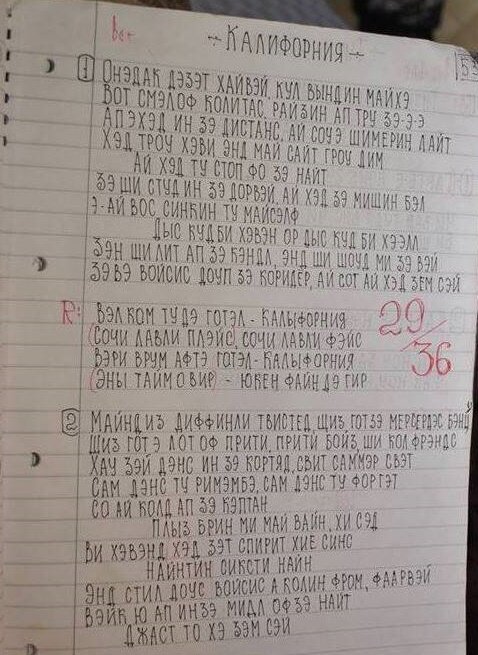 Вот
-КАЛИФОРНИЯ-
1 ОНЭДАК ДЭЗЭТ ХАЙВЭЙ, КУЛ ВЫНДИН МАЙХЭ
ВОТ СМЭЛОФ КОЛИТАС, РАЙЗИН АП ТРУ ЗЭ-Э-Э
АПЭХЭД ИН ЗЭ ДИСТАНС, АЙ СОУЭ ШИМЕРИН ЛАЙТ
ХЭД ТРОУ ХЭВИ ЭНД МАЙ САЙТ ГРОУ ДИМ
АЙ ХЭД ТУ СТОП ФО ЗЭ НАЙТ
ЗЭ ШИ СТУД ИН ЗЭ ДОРВЭЙ, АЙ ХЭД ЗЭ МИШИН БЭЛ
Э-АЙ ВОС СИНКИН ТУ МАЙСЭЛФ
ДЫС КУД БИ ХЭВЭН ОР ДЫС КУД БИ ХЭЭЛЛ
ЗЭН ШИ ЛИТ АП ЗЭ КЭНДЛ, ЭНД ШИ ШОУД МИ ЗЭ ВЭЙ
ЗЭ ВЭ ВОЙСИС ДОУП ЗЭ КОРИДЕР, АЙ СОТ АЙ ХЭД ЗЕМ СЭЙ
R: ВЭЛКОМ ТУ ДЭ ГОТЭЛ - КАЛЫФОРНИЯ
(СОЧИ ЛАВЛИ ПЛЭЙС), СОЧИ ЛАВЛИ ФЭЙС
ВЭРИ ВРУМ АФТЭ ГОТЕЛ - КАЛЫФОРНИЯ
(ЭНЫ ТАЙМ О ВИР) - ЮКЕН ФАЙН ДЭ ГИР
29/36
2 МАЙНД ИЗ ДИФФИНЛИ ТВИСТЕД, ЩИЗ ГОТ ЗЭ МЕРСЕРДЭС БЭНЦ
ЩИЗ ГОТ Э ЛОТ ОФ ПРИТИ, ПРИТИ БОЙЗ, ШИ КОЛ ФРЭНДС
ХАУ ЗЭЙ ДЭНС ИН ЗЭ КОРТЯД, СВИТ САММЭР СВЭТ
САМ ДЭНС ТУ РИМЭМБЭ, САМ ДЭНС ТУ ФОРГЭТ
СО АЙ КОЛД АП ЗЭ КЭПТАН
ПЛЫЗ БРИН МИ МАЙ ВАЙН, ХИ СЭД
ВИ ХЭВЭНД ХЭД ЗЭТ СПИРИТ ХИЕ СИНС
НАЙНТИН СИКСТИ НАЙН
ЭНД СТИЛ ДОУС ВОЙСИС А КОЛИН ФРОМ, ФААРВЭЙ
ВЭЙК Ю АП ИН ЗЭ МИДЛ ОФ ЗЭ НАЙТ
ДЖАСТ ТО ХЭ ЗЭМ СЭЙ